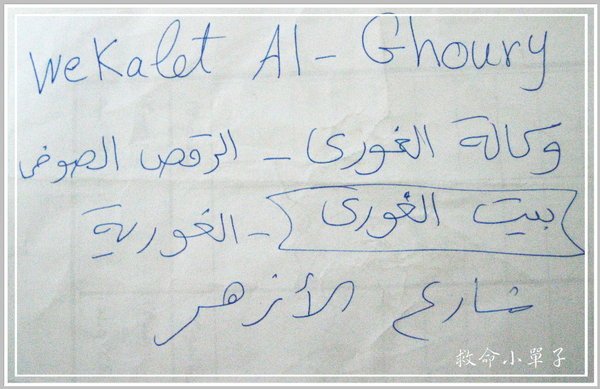 Wekalet Al-Ghoury
وكالة الغورى - الرقص الصوفى
بيت الغورى - الغورية
شارع الأزهر
救命小單子